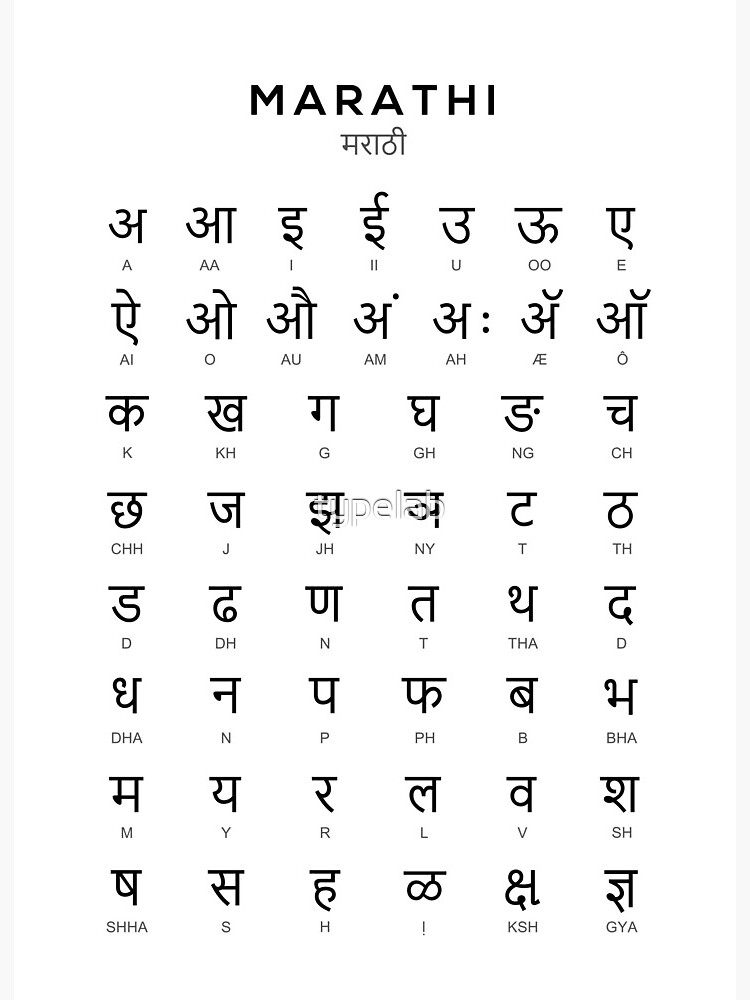 MARATHI
मराठी
अ आ इ ई उ ऊ ए
A AA I II U OO E
ऐ ओ औ अं अः ॲ ऑ
AI O AU AM AH Æ Ô
क ख ग घ ङ च
K KH G GH NG CH
छ ज झ ञ ट ठ
typelab
CHH J JH NY T TH
ड ढ ण त थ द
D DH N T THA D
ध न प फ ब भ
DHA N P PH B BHA
म य र ल व श
M Y R L V SH
ष स ह ळ क्ष ज्ञ
SHHA S H Ị KSH GYA